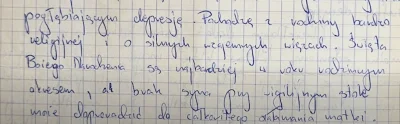 pogłębiającym depresję. Pochodzę z rodziny bardzo
religijnej i o silnych wzajemnych więzach. Święta
Bożego Narodzenia są najbardziej w roku rodzinnym
okresem, a brak syna przy wigilijnym stole
może doprowadzić do całkowitego załamania matki.